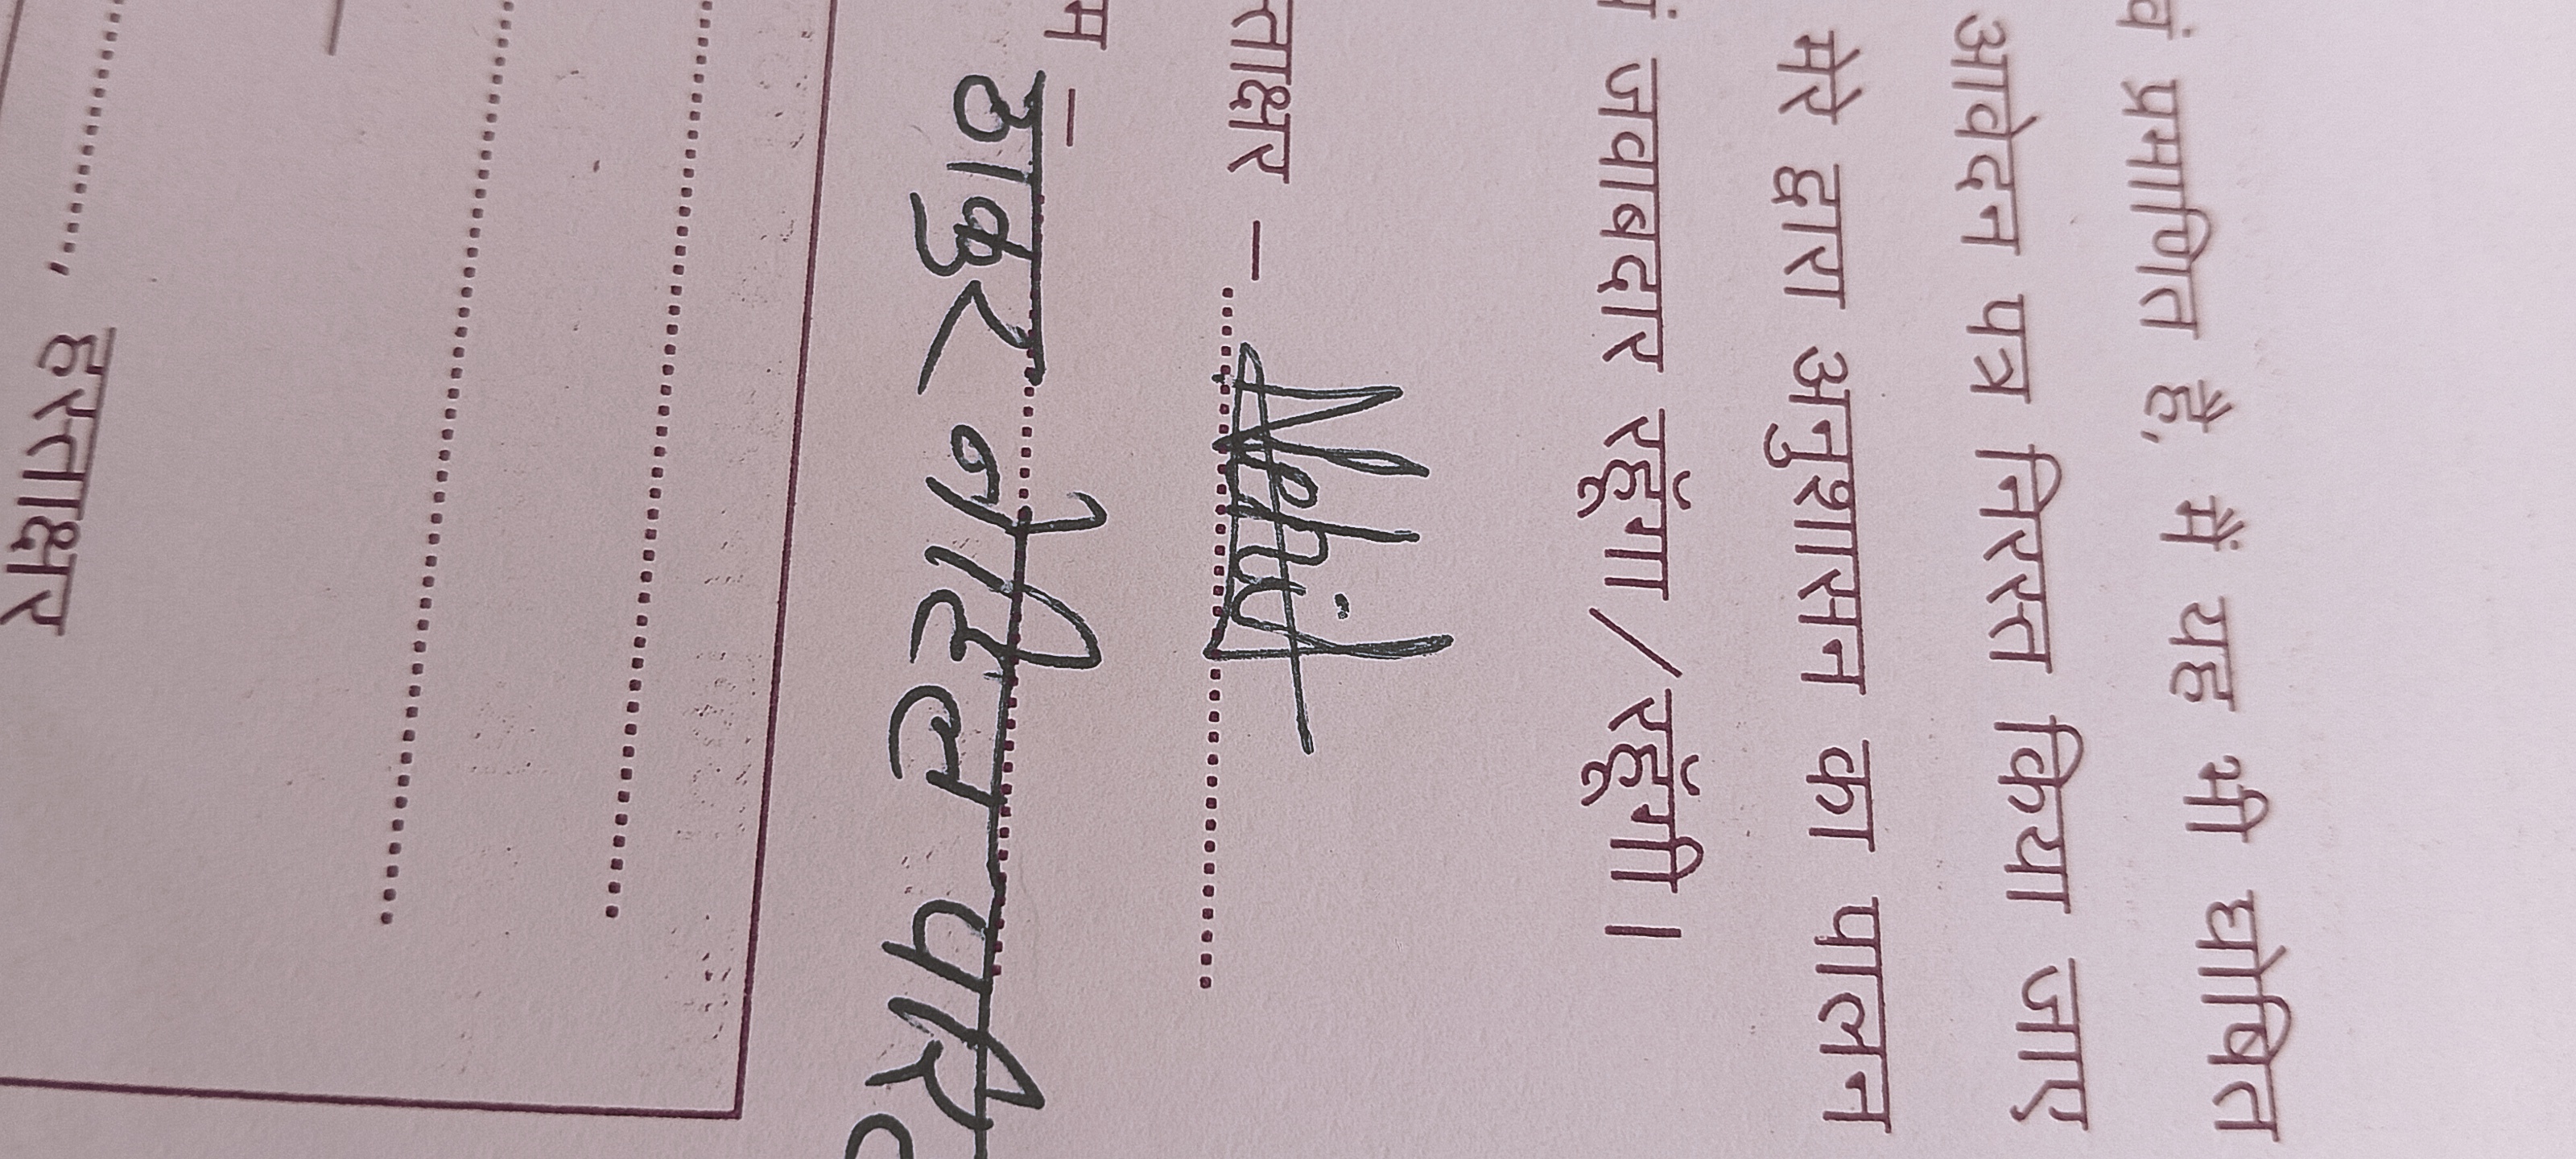 वं प्रमाणित है, मैं यह भी घोषित
आवेदन पत्र निरस्त किया जाए
मेरे द्वारा अनुशासन का पालन
जवाबदार रहूँगा/रहूँगी।
स्ताक्षर – Nehit
म – ठाकुर नेहित
हस्ताक्षर